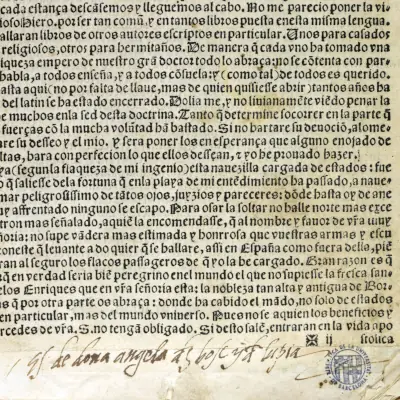 cada estança descãsemos y lleguemos al cabo. No me parecio poner la vi
oso Hiero. por ser tan comũ, y en tantos libros puesta en esta misma lengua.
allaran libros de otros autores escriptos en particular. Unos para casados
religiosos, otros para hermitaños. De manera q̃ cada vno ha tomado vna
riqueza empero de nuestro grã doctor todo lo abraça: no se cõtenta con par
habla, a todos enseña, y a todos cõsuela: y (como tal) de todos es querido.
asta aqui (no por falta de llaue, mas de quien quisiesse abrir) tantos años ha
del latin se ha estado encerrado. Dolia me, y no liuianamẽte viẽdo penar la
e muchos en la sed desta doctrina. Tanto q̃ determine socorrer en la parte q̃
fuerças cõ la mucha volũtad hã bastado. Si no hartare su deuociõ, alome
are su desseo y el mio. y sera poner los en esperança que alguno enojado de
ltas, hara con perfecion lo que ellos dessean, y yo he prouado hazer.
ya (segun la flaqueza de mi ingenio) esta nauezilla cargada de estados: fue
q̃ saliesse dela fortuna q̃ en la playa de mi entẽdimiento ha passado, a naue
mar peligrosissimo de tãtos ojos, juyzios y pareceres: dõde basta oy de ane
uy affrentado ninguno se escapo. Para osar la soltar no halle norte mas exce
tron mas señalado, aquiẽ la encomendasse, q̃ al nombre y fauor de vr̃a muy
ñoria: no supe vãdera mas estimada y honrrosa que vuestras armas y escu
oneste q̃ leuante a do quier q̃ se hallare, assi en España como fuera della, piẽ
ran al seguro los flacos passageros de q̃ yo la he cargado. Gran razon es q̃
q̃ en verdad seria biẽ peregrino en el mundo el que no supiesse la fresca san
los Enriques que en vr̃a señoria esta: la nobleza tan alta y antigua de Bor
as q̃ por otra parte os abraça: donde ha cabido el mãdo, no solo de estados
en particular, mas del mundo universo. Pues no se a quien los beneficios y
rcedes de vr̃a. S. no tengã obligado. Si desto salẽ, entraran en la vida apo
ij stolica
de dona angela